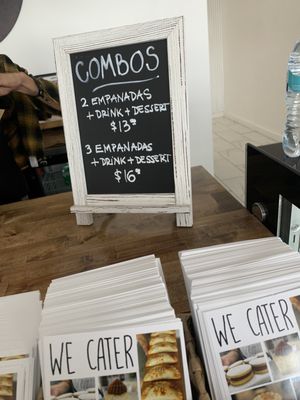 COMBOS
2 EMPANADAS
+ DRINK + DESSERT
$13
3 EMPANADAS
+ DRINK + DESSERT
$16
WE CATER
WE CATER